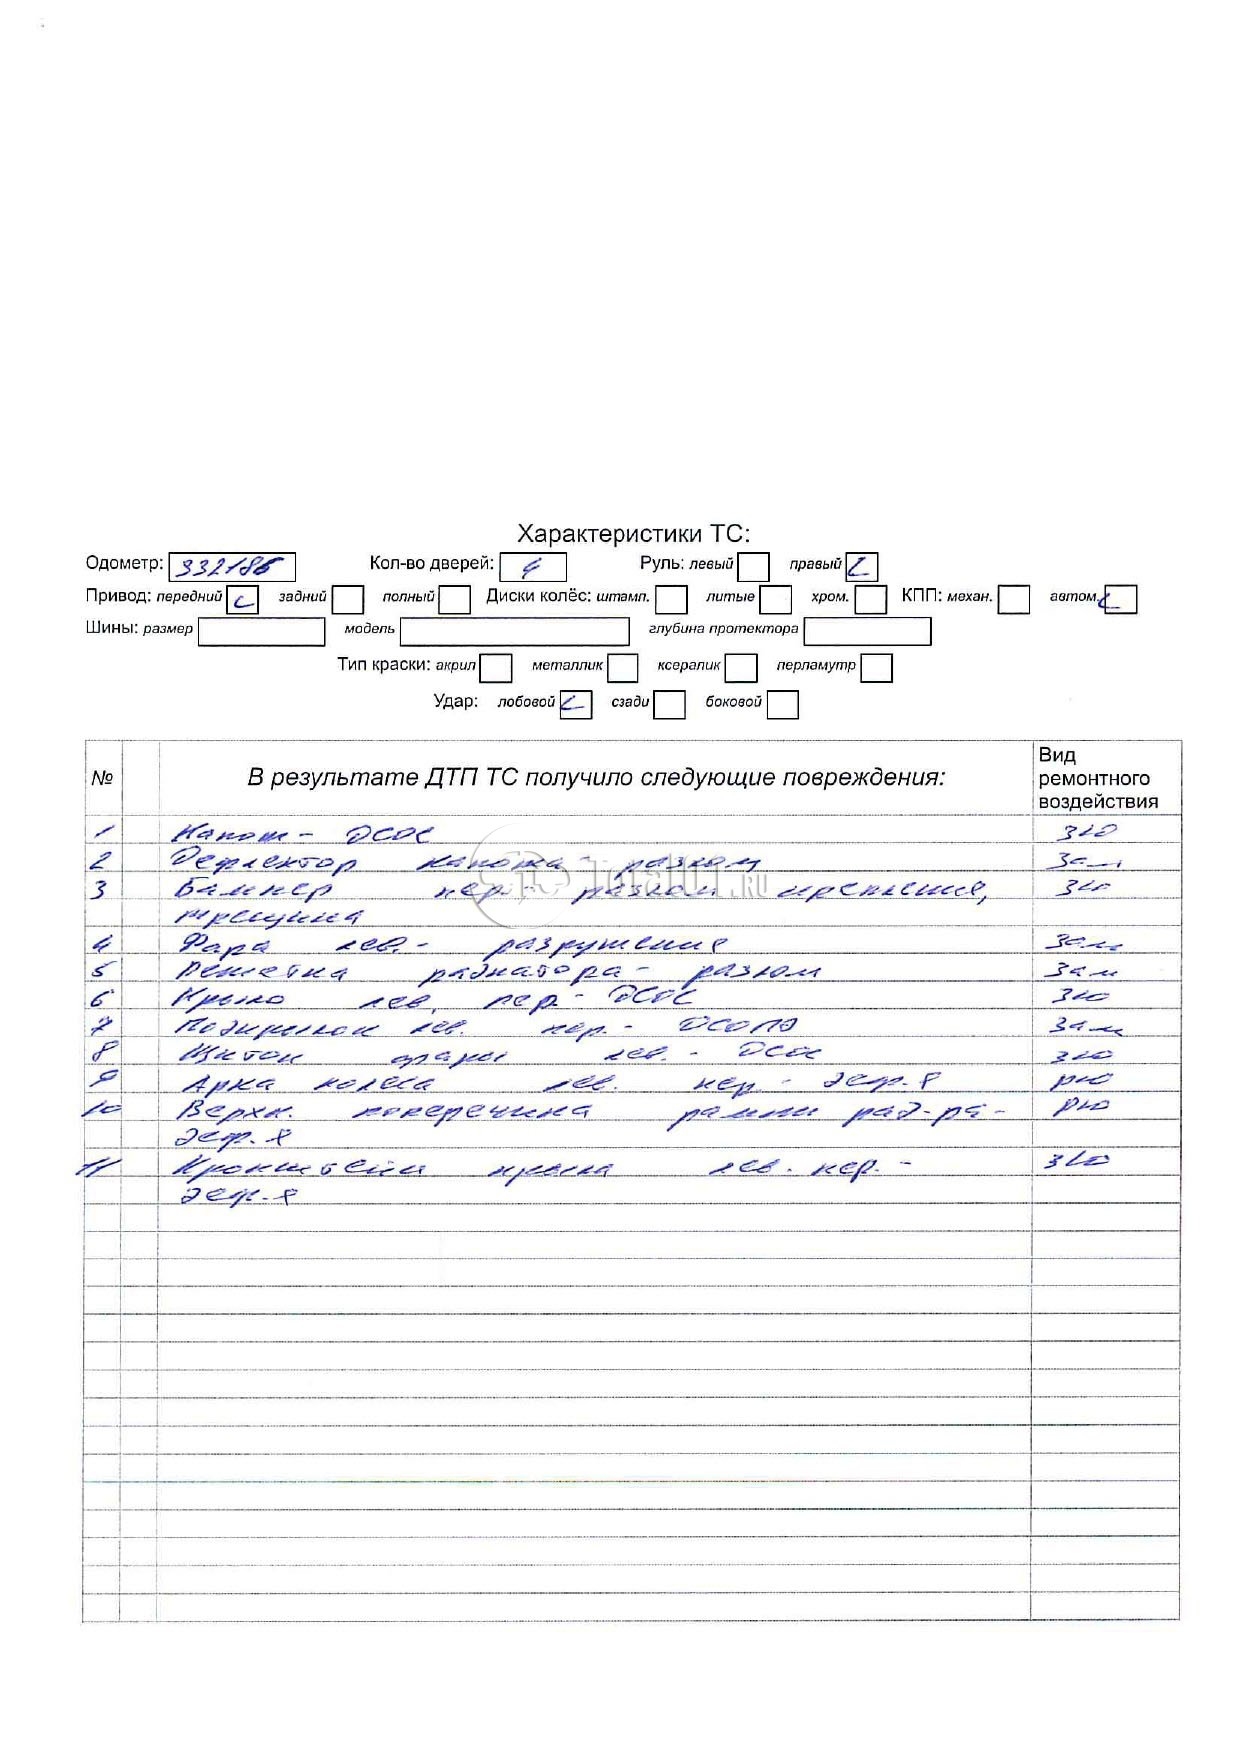 Характеристики ТС:
Одометр: 332186 Кол-во дверей: 4 Руль: левый правый
Привод: передний задний полный Диски колёс: штамп. литые хром. КПП: механ. автом.
Шины: размер модель глубина протектора
Тип краски: акрил металлик ксералик перламутр
Удар: лобовой сзади боковой
№ В результате ДТП ТС получило следующие повреждения: Вид ремонтного воздействия
1 Капот - ДСОС з/о
2 Дефлектор капота - разлом зам.
Total01.RU
3 Бампер пер. - разлом крепления, з/о
трещина
4 Фара лев. - разрушение зам
5 Решетка радиатора - разлом зам
6 Крыло лев. пер. - ДСОС з/о
7 Подкрылок лев. пер. - зам
8 Щиток фары лев. - ДСОС з/о
9 Арка колеса лев. пер. - деф. я р/о
10 Верхн. поперечина рамки рад-ра - р/о
деф. я
11 Кронштейн крыла лев. пер. - з/о
деф. я